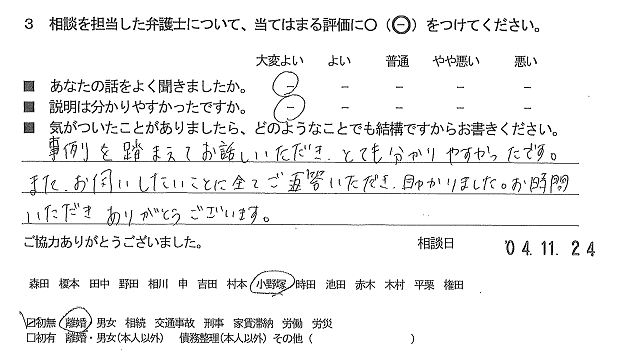 3 相談を担当した弁護士について、当てはまる評価に〇（⊖）をつけてください。
大変よい よい 普通 やや悪い 悪い
■ あなたの話をよく聞きましたか。 － － － － －
■ 説明は分かりやすかったですか。 － － － － －
■ 気がついたことがありましたら、どのようなことでも結構ですからお書きください。
事例を踏まえてお話しいただき、とても分かりやすかったです。
また、お伺いしたいことに全てご回答いただき、助かりました。お時間
いただきありがとうございます。
ご協力ありがとうございました。 相談日 '04.11.24
森田 榎本 田中 野田 相川 申 吉田 村本 小野塚 時田 池田 赤木 木村 平栗 権田
☑初無 離婚・男女 相続 交通事故 刑事 家賃滞納 労働 労災
□初有 離婚・男女(本人以外) 債務整理(本人以外) その他（ ）